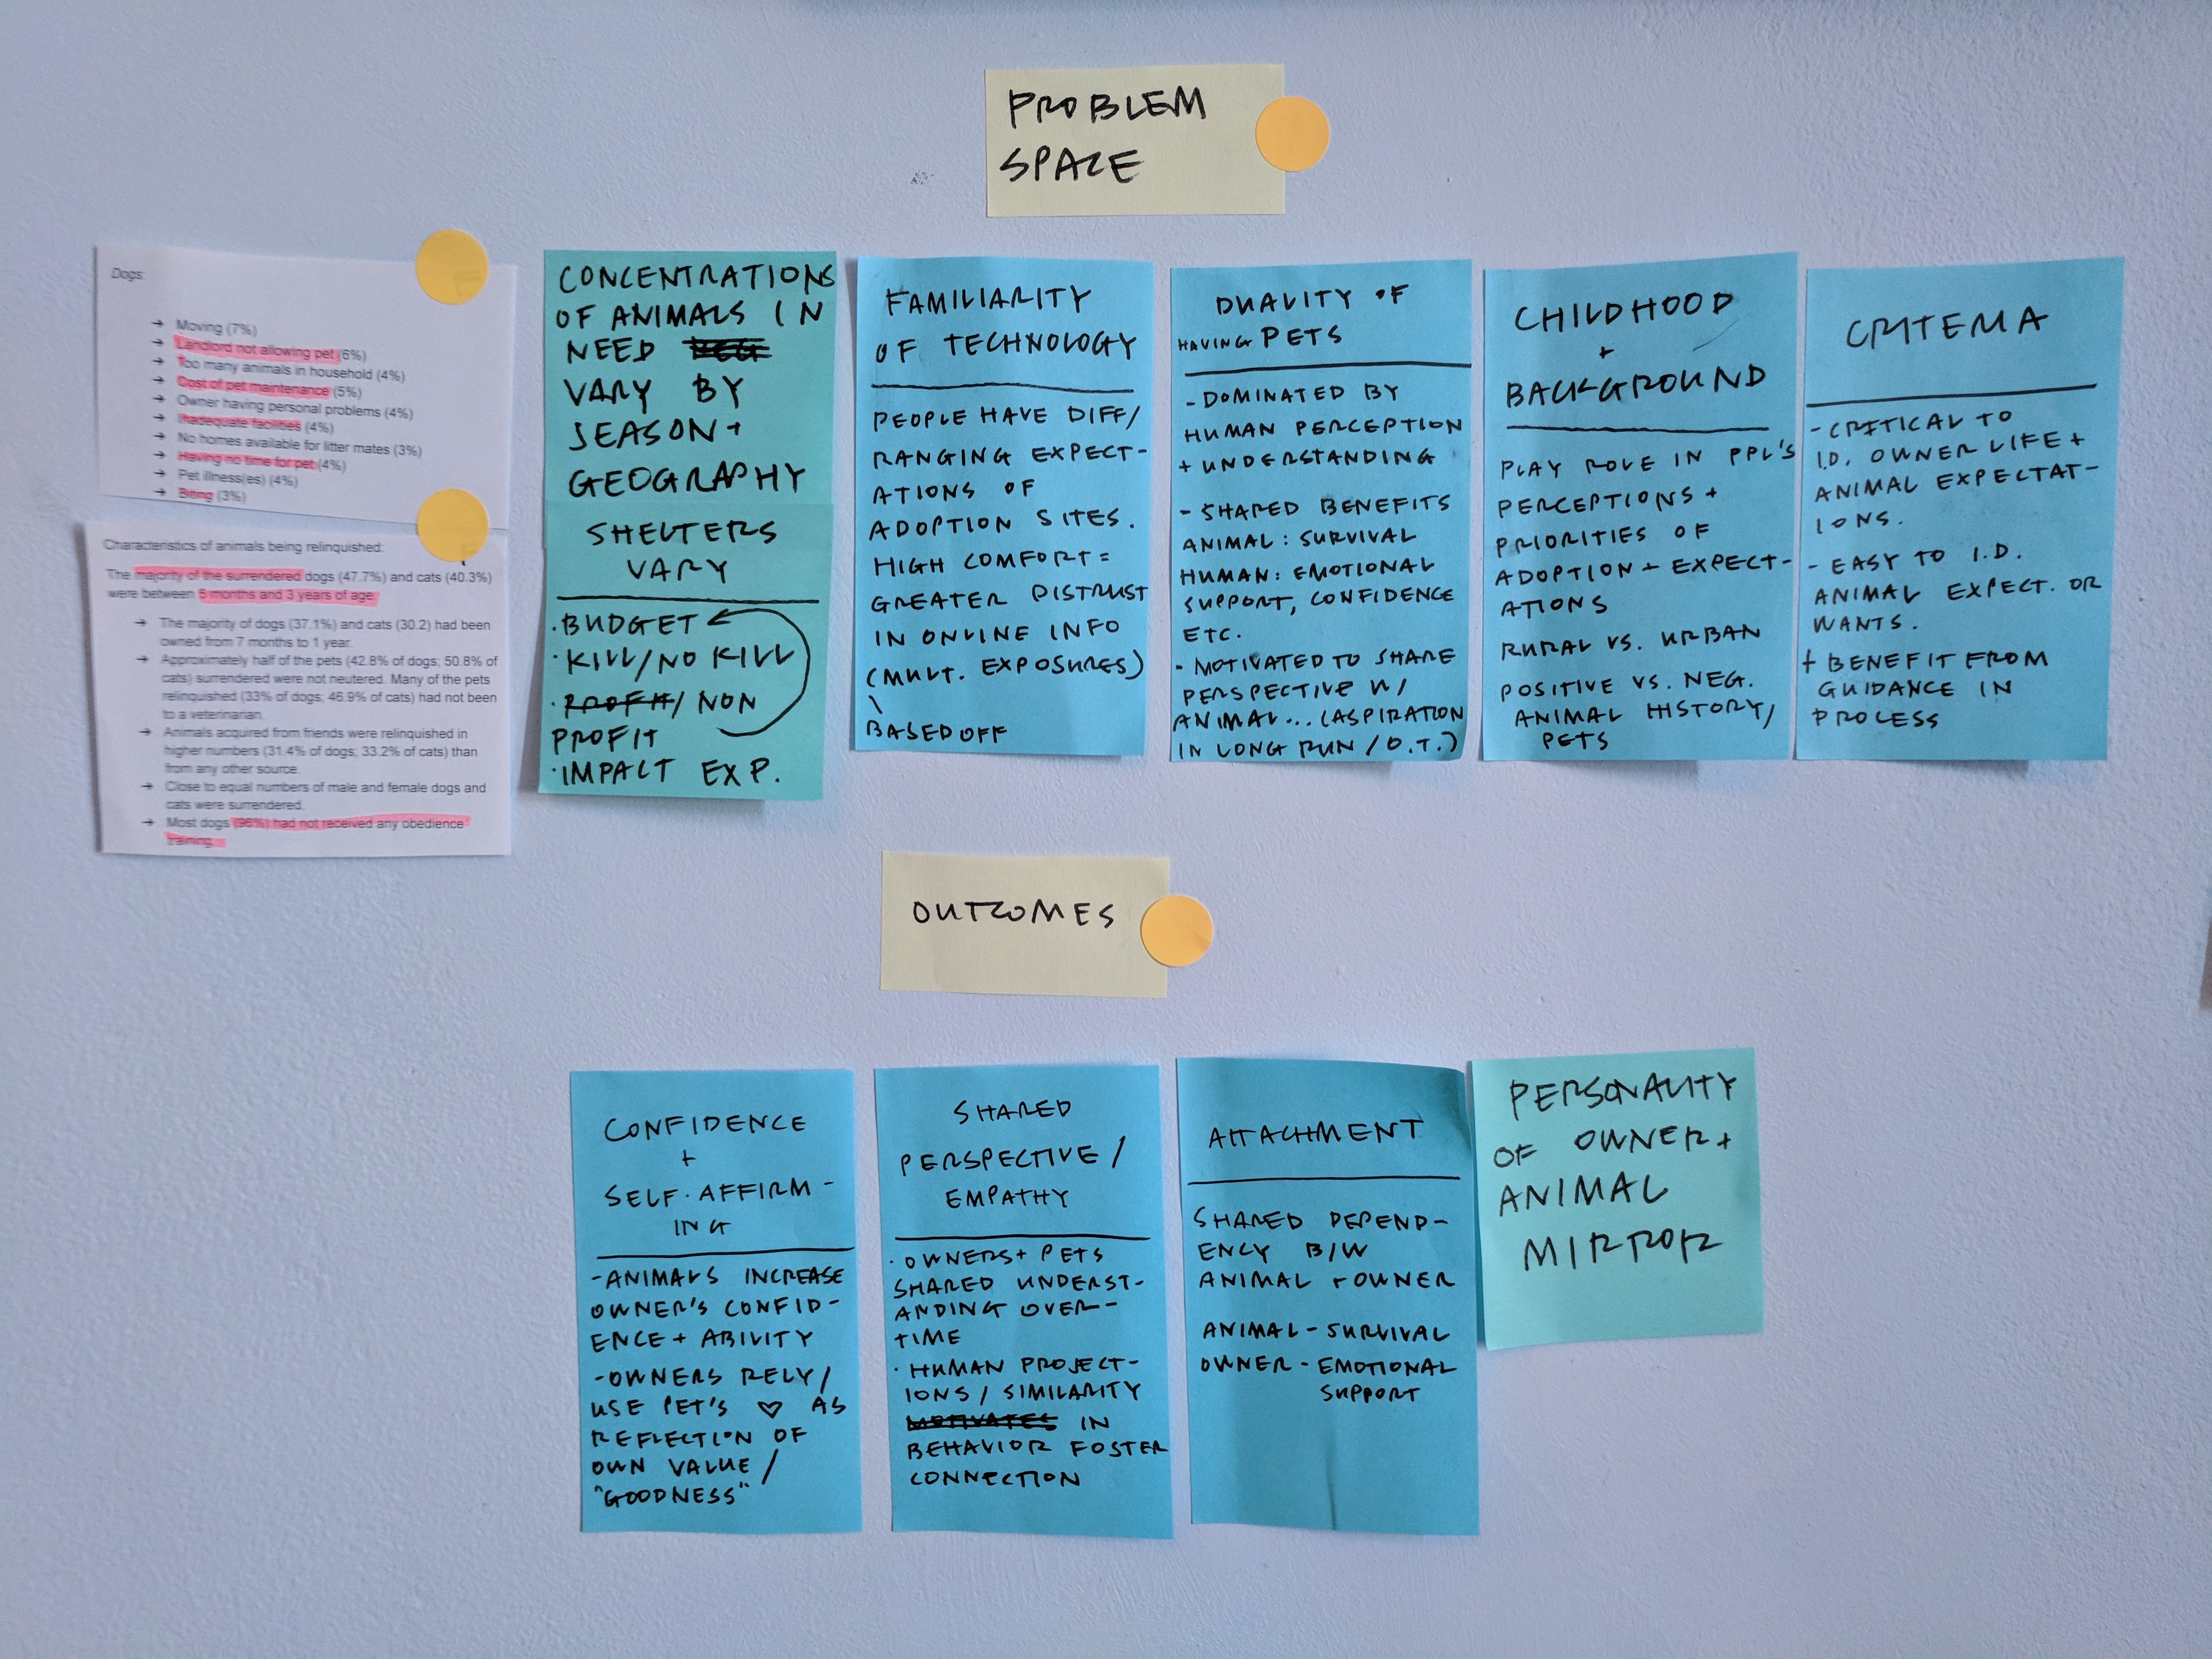 PROBLEM
SPACE
Dogs:
→ Moving (7%)
→ Landlord not allowing pet (6%)
→ Too many animals in household (4%)
→ Cost of pet maintenance (5%)
→ Owner having personal problems (4%)
→ Inadequate facilities (4%)
→ No homes available for litter mates (3%)
→ Having no time for pet (4%)
→ Pet illness(es) (4%)
→ Biting (3%)
Characteristics of animals being relinquished:
The majority of the surrendered dogs (47.7%) and cats (40.3%)
were between 5 months and 3 years of age.
→ The majority of dogs (37.1%) and cats (30.2) had been
owned from 7 months to 1 year.
→ Approximately half of the pets (42.8% of dogs; 50.8% of
cats) surrendered were not neutered. Many of the pets
relinquished (33% of dogs; 46.9% of cats) had not been
to a veterinarian.
→ Animals acquired from friends were relinquished in
higher numbers (31.4% of dogs; 33.2% of cats) than
from any other source.
→ Close to equal numbers of male and female dogs and
cats were surrendered.
→ Most dogs (96%) had not received any obedience
training.
CONCENTRATIONS
OF ANIMALS IN
NEED
VARY BY
SEASON +
GEOGRAPHY
SHELTERS
VARY
· BUDGET
· KILL/NO KILL
· PROFIT/ NON
PROFIT
· IMPACT EXP.
FAMILIARITY
OF TECHNOLOGY
PEOPLE HAVE DIFF/
RANGING EXPECT-
ATIONS OF
ADOPTION SITES.
HIGH COMFORT =
GREATER DISTRUST
IN ONLINE INFO
(MULT. EXPOSURES)
\
BASED OFF
DUALITY OF
HAVING PETS
- DOMINATED BY
HUMAN PERCEPTION
+ UNDERSTANDING
- SHARED BENEFITS
ANIMAL: SURVIVAL
HUMAN: EMOTIONAL
SUPPORT, CONFIDENCE
ETC.
- MOTIVATED TO SHARE
PERSPECTIVE W/
ANIMAL... (ASPIRATION
IN LONG RUN / O.T.)
CHILDHOOD
+
BACKGROUND
PLAY ROLE IN PPL'S
PERCEPTIONS +
PRIORITIES OF
ADOPTION + EXPECT-
ATIONS
RURAL VS. URBAN
POSITIVE VS. NEG.
ANIMAL HISTORY/
PETS
CRITERIA
- CRITICAL TO
I.D. OWNER LIFE +
ANIMAL EXPECTAT-
IONS.
- EASY TO I.D.
ANIMAL EXPECT. OR
WANTS.
+ BENEFIT FROM
GUIDANCE IN
PROCESS
OUTCOMES
CONFIDENCE
+
SELF-AFFIRM-
ING
- ANIMALS INCREASE
OWNER'S CONFID-
ENCE + ABILITY
- OWNERS RELY/
USE PET'S ♡ AS
REFLECTION OF
OWN VALUE /
"GOODNESS"
SHARED
PERSPECTIVE /
EMPATHY
· OWNERS + PETS
SHARED UNDERST-
ANDING OVER-
TIME
· HUMAN PROJECT-
IONS / SIMILARITY
MOTIVATES IN
BEHAVIOR FOSTER
CONNECTION
ATTACHMENT
SHARED DEPEND-
ENCY B/W
ANIMAL + OWNER
ANIMAL - SURVIVAL
OWNER - EMOTIONAL
SUPPORT
PERSONALITY
OF OWNER +
ANIMAL
MIRROR